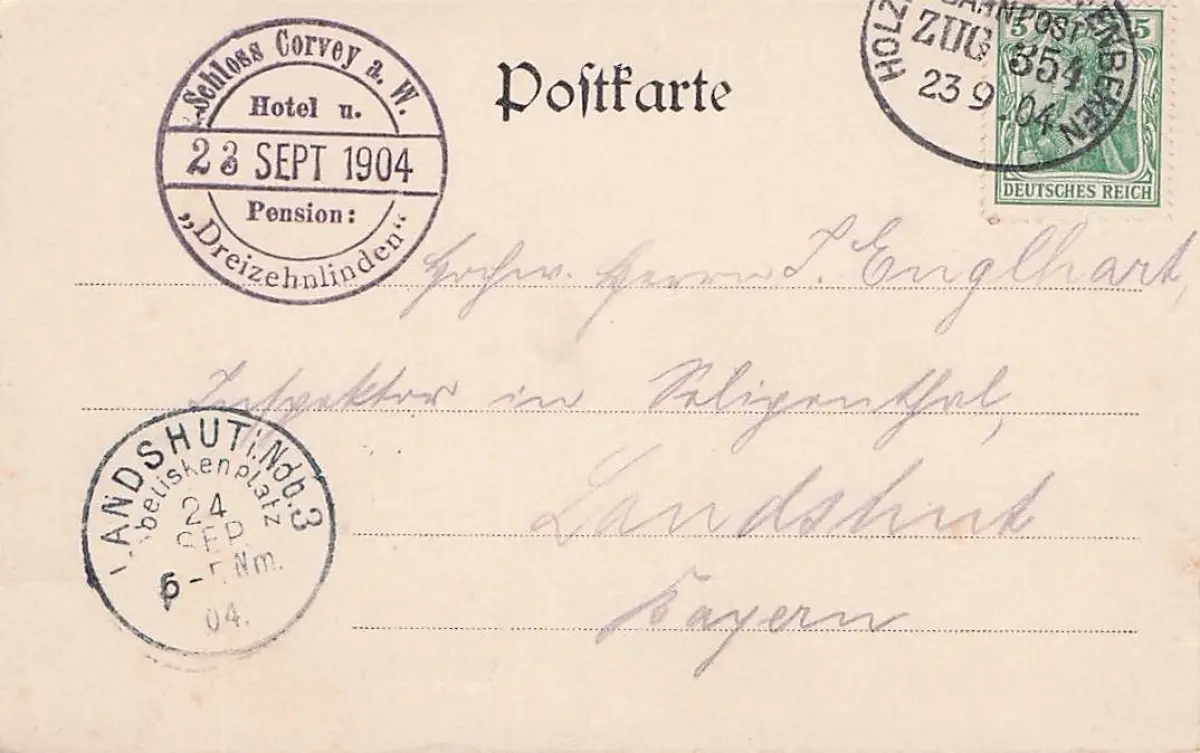 Postkarte
Schloss Corvey a. W.
Hotel u.
23 SEPT 1904
Pension:
„Dreizehnlinden“
BAHNPOST
ZUG 354
23 9 .04
5 5
DEUTSCHES REICH
Hochw. Herrn J. Englhart,
Inspektor in Seligenthal,
Landshut
Bayern
LANDSHUT i. Ndb. 3
24
SEP.
Nm.
04.